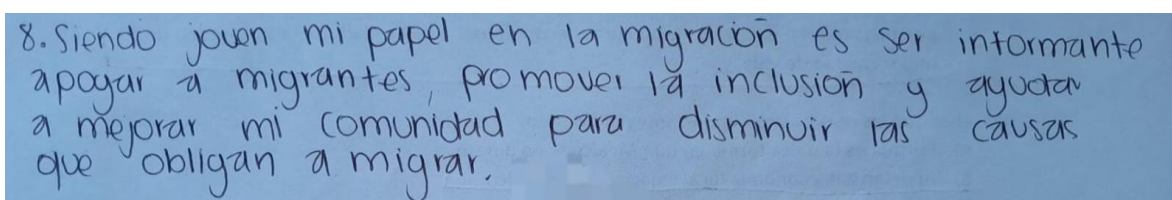 8. Siendo joven mi papel en la migración es ser informante
apoyar a migrantes, promover la inclusión y ayudar
a mejorar mi comunidad para disminuir las causas
que obligan a migrar.